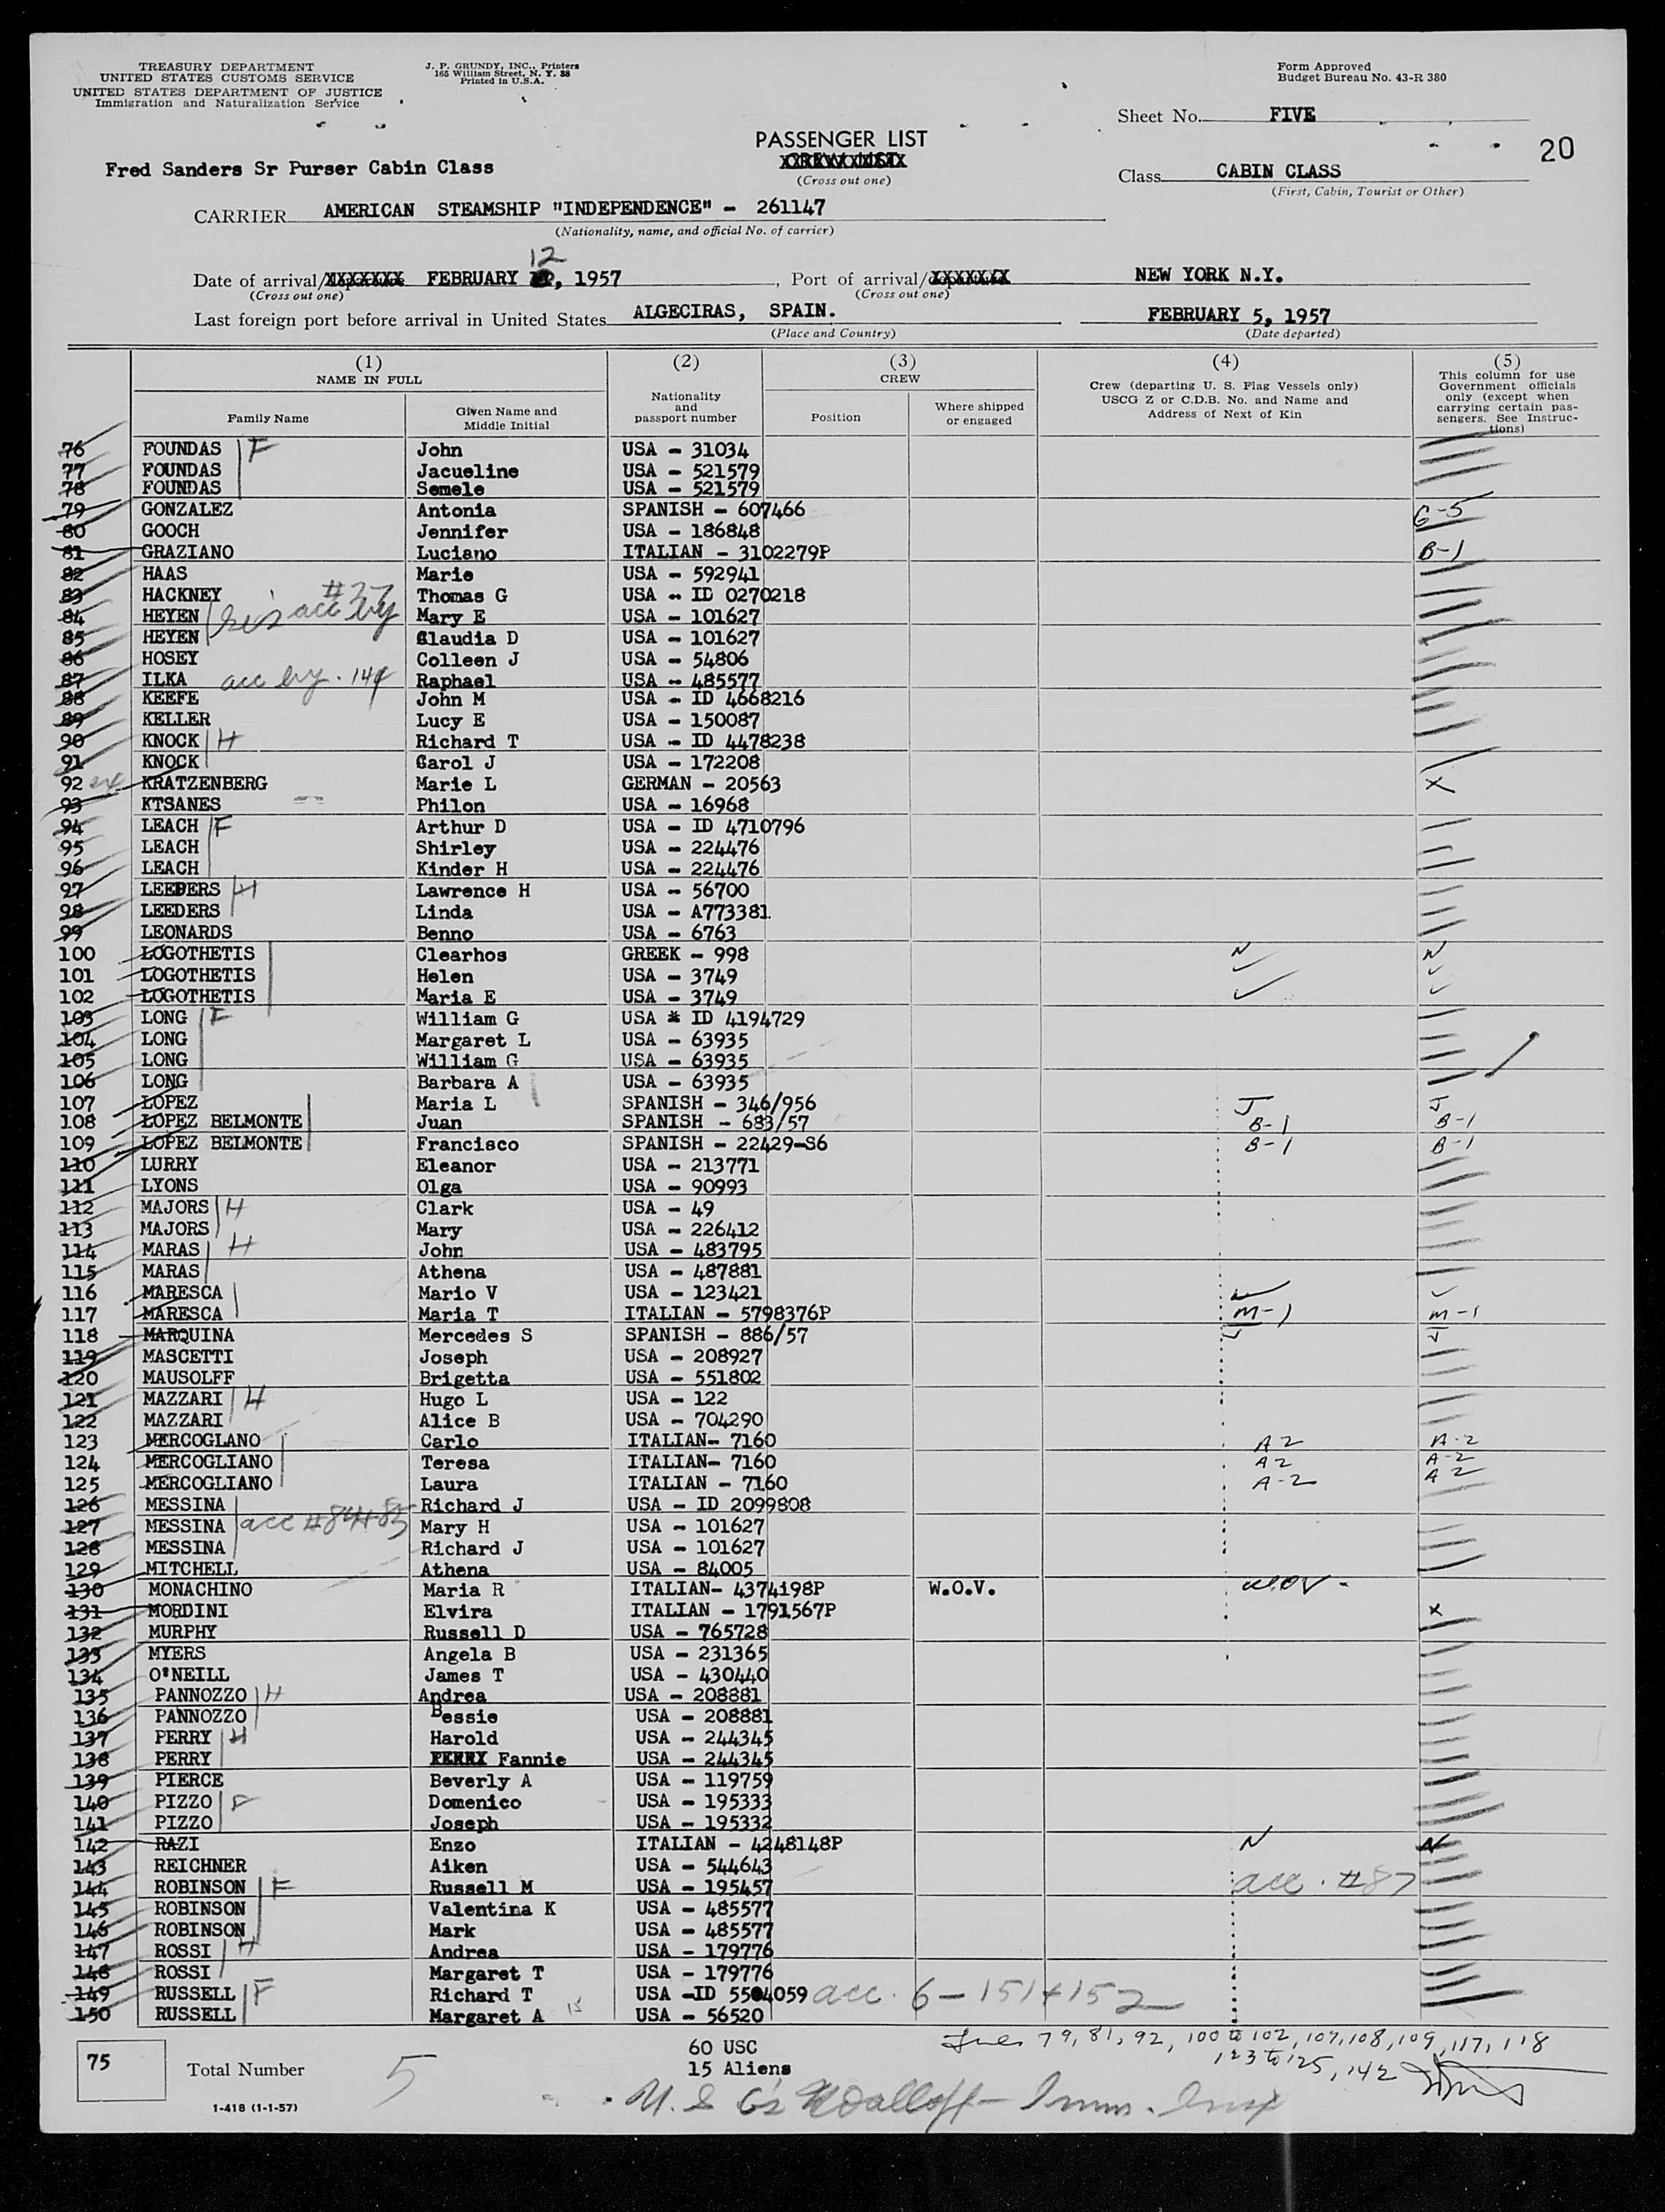 TREASURY DEPARTMENT
UNITED STATES CUSTOMS SERVICE
UNITED STATES DEPARTMENT OF JUSTICE
Immigration and Naturalization Service
J. P. GRUNDY, INC., Printers
165 William Street, N. Y. 38
Printed in U.S.A.
Form Approved
Budget Bureau No. 43-R 380
Sheet No. FIVE
20
PASSENGER LIST
(Cross out one)
Fred Sanders Sr Purser Cabin Class
Class CABIN CLASS
(First, Cabin, Tourist or Other)
CARRIER AMERICAN STEAMSHIP "INDEPENDENCE" - 261147
(Nationality, name, and official No. of carrier)
12
Date of arrival/ FEBRUARY , 1957, Port of arrival/ NEW YORK N.Y.
(Cross out one) (Cross out one)
Last foreign port before arrival in United States ALGECIRAS, SPAIN. FEBRUARY 5, 1957
(Place and Country) (Date departed)
(1) NAME IN FULL
Family Name
Given Name and Middle Initial
(2) Nationality and passport number
(3) CREW
Position
Where shipped or engaged
(4) Crew (departing U. S. Flag Vessels only) USCG Z or C.D.B. No. and Name and Address of Next of Kin
(5) This column for use Government officials only (except when carrying certain passengers. See Instructions)
76 FOUNDAS F John USA - 31034
77 FOUNDAS Jacueline USA - 521579
78 FOUNDAS Semele USA - 521579
79 GONZALEZ Antonia SPANISH - 607466 G-5
80 GOOCH Jennifer USA - 186848
81 GRAZIANO Luciano ITALIAN - 3102279P B-1
82 HAAS Marie USA - 592941
83 HACKNEY Thomas G USA - ID 0270218
84 HEYEN Mary E USA - 101627
85 HEYEN Claudia D USA - 101627
86 HOSEY Colleen J USA - 54806
87 ILKA acc by. 144 Raphael USA - 485577
88 KEEFE John M USA - ID 4668216
89 KELLER Lucy E USA - 150087
90 KNOCK H Richard T USA - ID 4478238
91 KNOCK Carol J USA - 172208
92 KRATZENBERG Marie L GERMAN - 20563 X
93 KTSANES Philon USA - 16968
94 LEACH F Arthur D USA - ID 4710796
95 LEACH Shirley USA - 224476
96 LEACH Kinder H USA - 224476
97 LEEDERS H Lawrence H USA - 56700
98 LEEDERS Linda USA - A773381
99 LEONARDS Benno USA - 6763
100 LOGOTHETIS Clearhos GREEK - 998 N N
101 LOGOTHETIS Helen USA - 3749 ✓ ✓
102 LOGOTHETIS Maria E USA - 3749 ✓ ✓
103 LONG F William G USA * ID 4194729
104 LONG Margaret L USA - 63935
105 LONG William G USA - 63935
106 LONG Barbara A USA - 63935
107 LOPEZ Maria L SPANISH - 346/956 J J
108 LOPEZ BELMONTE Juan SPANISH - 683/57 B-1 B-1
109 LOPEZ BELMONTE Francisco SPANISH - 22429-S6 B-1 B-1
110 LURRY Eleanor USA - 213771
111 LYONS Olga USA - 90993
112 MAJORS H Clark USA - 49
113 MAJORS Mary USA - 226412
114 MARAS H John USA - 483795
115 MARAS Athena USA - 487881
116 MARESCA Mario V USA - 123421 ✓ ✓
117 MARESCA Maria T ITALIAN - 5798376P M-1 M-1
118 MARQUINA Mercedes S SPANISH - 886/57 J J
119 MASCETTI Joseph USA - 208927
120 MAUSOLFF Brigetta USA - 551802
121 MAZZARI H Hugo L USA - 122
122 MAZZARI Alice B USA - 704290
123 MERCOGLANO Carlo ITALIAN- 7160 A2 A-2
124 MERCOGLIANO Teresa ITALIAN- 7160 A2 A-2
125 MERCOGLIANO Laura ITALIAN - 7160 A-2 A2
126 MESSINA Richard J USA - ID 2099808
127 MESSINA acc #84+85 Mary H USA - 101627
128 MESSINA Richard J USA - 101627
129 MITCHELL Athena USA - 84005
130 MONACHINO Maria R ITALIAN- 4374198P W.O.V. WOV -
131 MORDINI Elvira ITALIAN - 1791567P X
132 MURPHY Russell D USA - 765728
133 MYERS Angela B USA - 231365
134 O'NEILL James T USA - 430440
135 PANNOZZO H Andrea USA - 208881
136 PANNOZZO Bessie USA - 208881
137 PERRY H Harold USA - 244345
138 PERRY Fannie USA - 244345
139 PIERCE Beverly A USA - 119759
140 PIZZO F Domenico USA - 195333
141 PIZZO Joseph USA - 195332
142 RAZI Enzo ITALIAN - 4248148P N N
143 REICHNER Aiken USA - 544643
144 ROBINSON F Russell M USA - 195457 acc. #87
145 ROBINSON Valentina K USA - 485577
146 ROBINSON Mark USA - 485577
147 ROSSI H Andrea USA - 179776
148 ROSSI Margaret T USA - 179776
149 RUSSELL F Richard T USA -ID 5504059 acc. 6-151+152
150 RUSSELL Margaret A USA - 56520
75 Total Number 5
60 USC
15 Aliens
79, 81, 92, 100 to 102, 107, 108, 109, 117, 118
123 to 125, 142
1-418 (1-1-57)